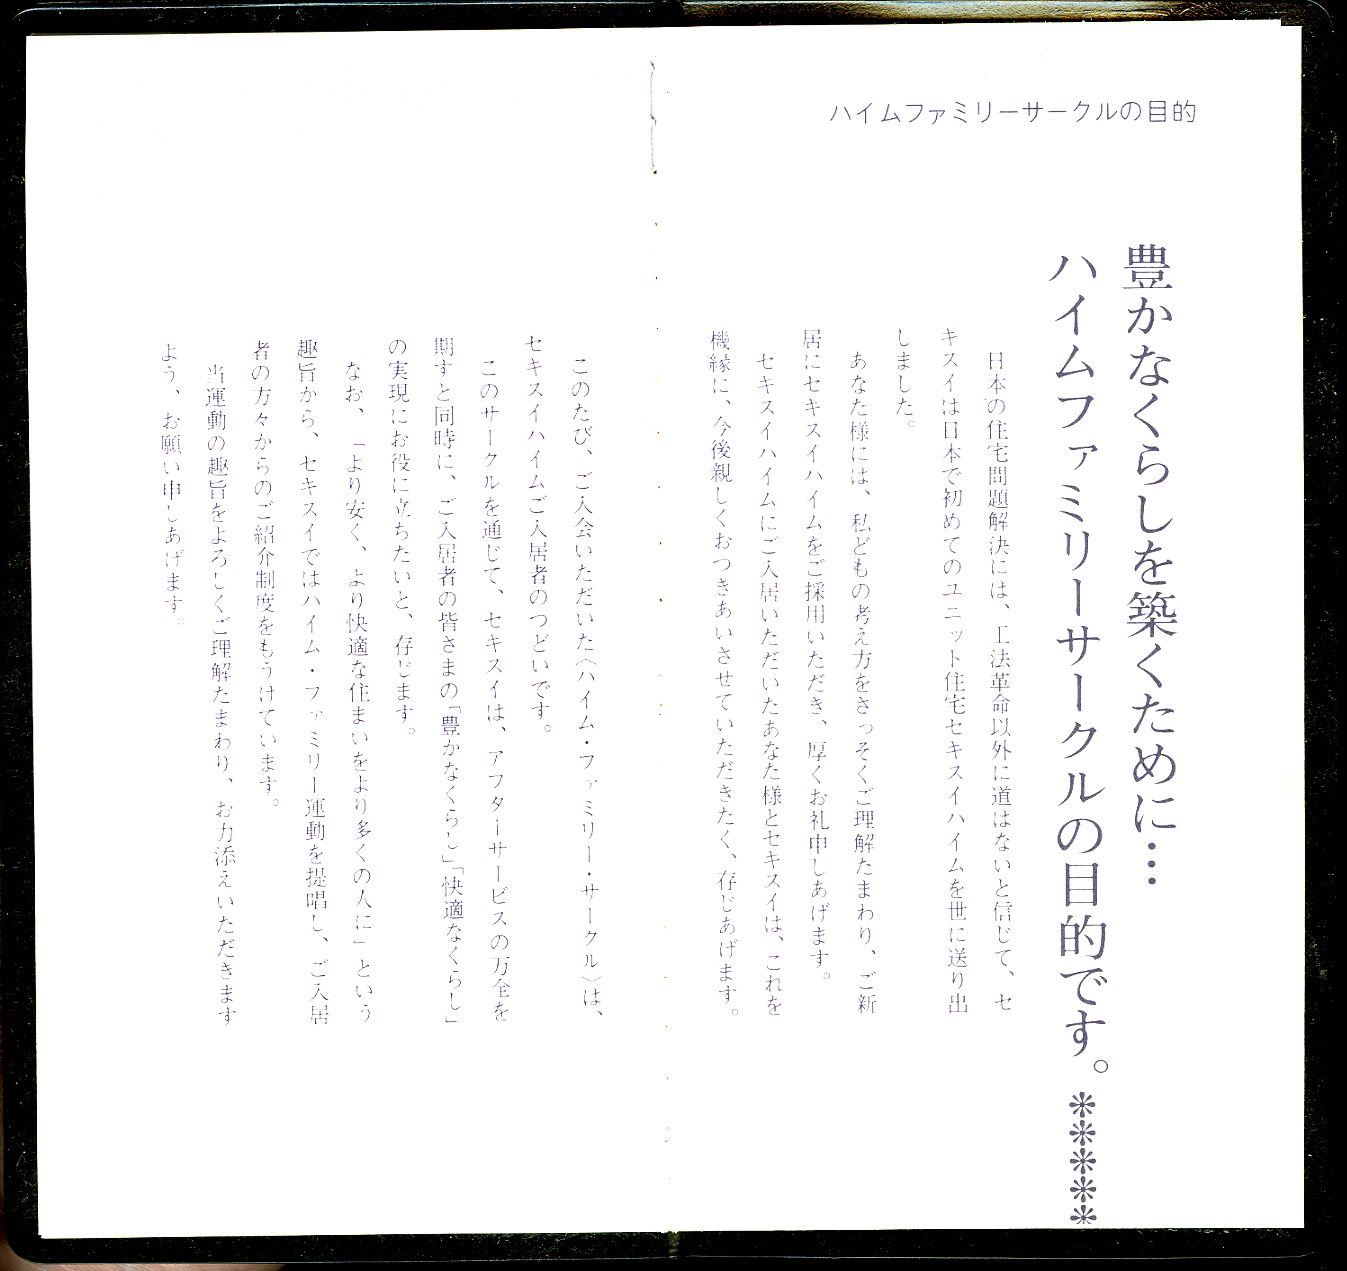 ハイムファミリーサークルの目的
豊かなくらしを築くために…
ハイムファミリーサークルの目的です。＊＊＊＊＊
日本の住宅問題解決には、工法革命以外に道はないと信じて、セ
キスイは日本で初めてのユニット住宅セキスイハイムを世に送り出
しました。
あなた様には、私どもの考え方をさっそくご理解たまわり、ご新
居にセキスイハイムをご採用いただき、厚くお礼申しあげます。
セキスイハイムにご入居いただいたあなた様とセキスイは、これを
機縁に、今後親しくおつきあいさせていただきたく、存じあげます。
このたび、ご入会いただいた〈ハイム・ファミリー・サークル〉は、
セキスイハイムご入居者のつどいです。
このサークルを通じて、セキスイは、アフターサービスの万全を
期すと同時に、ご入居者の皆さまの「豊かなくらし」「快適なくらし」
の実現にお役に立ちたいと、存じます。
なお、「より安く、より快適な住まいをより多くの人に」という
趣旨から、セキスイではハイム・ファミリー運動を提唱し、ご入居
者の方々からのご紹介制度をもうけています。
当運動の趣旨をよろしくご理解たまわり、お力添えいただきます
よう、お願い申しあげます。